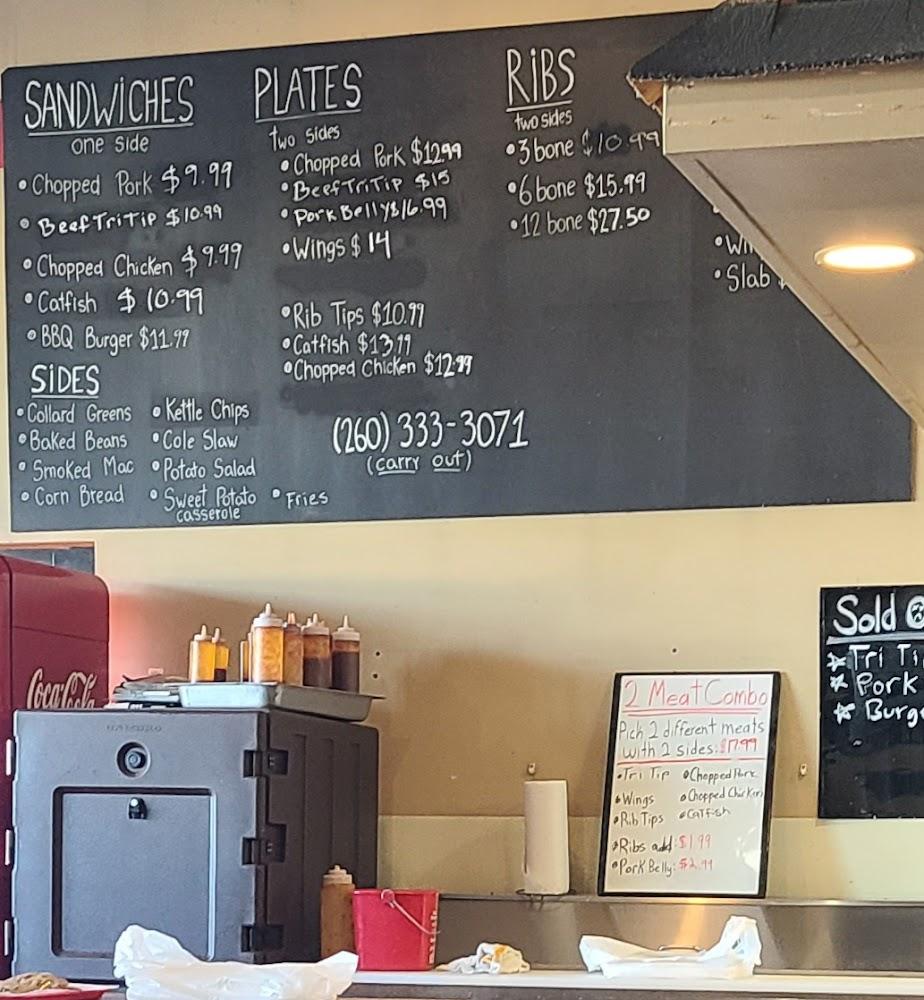 SANDWiCHES
one side
• Chopped Pork $9.99
• Beef Tri Tip $10.99
• Chopped Chicken $9.99
• Catfish $10.99
• BBQ Burger $11.99
SiDES
• Collard Greens
• Baked Beans
• Smoked Mac
• Corn Bread
• Kettle Chips
• Cole Slaw
• Potato Salad
• Sweet Potato
casserole
• Fries
PLATES
two sides
• Chopped Pork $12.99
• Beef Tri Tip $15
• Pork Belly $16.99
• Wings $14
• Rib Tips $10.99
• Catfish $13.99
• Chopped Chicken $12.99
(260) 333-3071
(carry out)
RiBS
two sides
• 3 bone $10.99
• 6 bone $15.99
• 12 bone $27.50
• Slab
Coca-Cola
2 Meat Combo
Pick 2 different meats
with 2 sides: $17.99
• Tri Tip
• Wings
• Rib Tips
• Chopped Pork
• Chopped Chicken
• Catfish
• Ribs add: $1.99
• Pork Belly: $2.99
Sold
Tri Ti
Pork
Burg